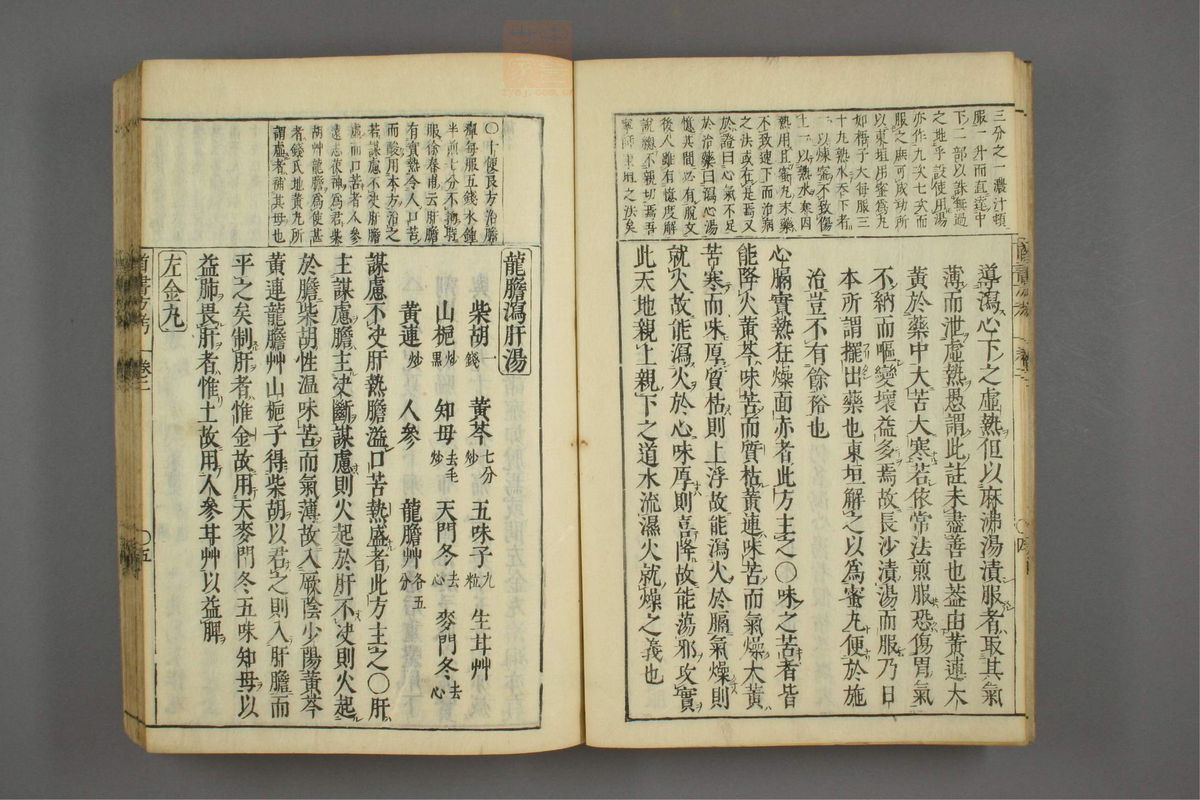 三分之一濃汁頓
服一升而直達中
下二部以誅無過
之地乎設使用湯
亦作九次七次而
服之庶可成功所
以東垣用蜜爲丸
如梧子大每服三
十丸熟水吞下者
以煉蜜不致傷
熱用且蜜丸末藥
不致速下而治病
之法或有是焉又
於證曰心氣不足
於治藥曰瀉心湯
億其間必有脫文
後人雖有億度解
說總不親切焉吾
寧師東垣之法矣
導瀉心下之虛熱但以麻沸湯漬服者取其氣
薄而泄虛熱愚謂此註未盡善也葢由黃連大
黃於藥中大苦大寒若依常法煎服恐傷胃氣
不納而嘔變壞益多焉故長沙漬湯而服乃日
本所謂擺出藥也東垣解之以爲蜜丸便於施
治豈不有餘裕也
心膈實熱狂燥面赤者此方主之〇味之苦者皆
能降火黃芩味苦而質枯黃連味苦而氣燥大黃
苦寒而味厚質枯則上浮故能瀉火於膈氣燥則
就火故能瀉火於心味厚則喜降故能蕩邪攻實
此天地親上親下之道水流濕火就燥之義也
〇十便良方治膽
癉每服五錢水鍾
半煎七分不拘時
服徐春甫云肝膽
有實熱令人口苦
而酸用本方治之
若謀慮不決肝膽
虛而口苦者人參
遠志茯神爲君柴
胡艸龍膽爲使甚
者錢氏地黃丸所
謂虛者補其母也
龍膽瀉肝湯
柴胡一錢 黃芩七分炒 五味子九粒 生甘艸
山梔炒黑 知母去毛炒 天門冬去心 麥門冬去心
黃連炒 人參 龍膽艸各五分
謀慮不決肝熱膽溢口苦熱盛者此方主之〇肝
主謀慮膽主決斷謀慮則火起於肝不決則火起
於膽柴胡性溫味苦而氣薄故入厥陰少陽黃芩
黃連龍膽艸山梔子得柴胡以君之則入肝膽而
平之矣制肝者惟金故用天麥門冬五味知母以
益肺畏肝者惟土故用人參甘艸以益脾
左金丸
首書方考 卷二 〇五